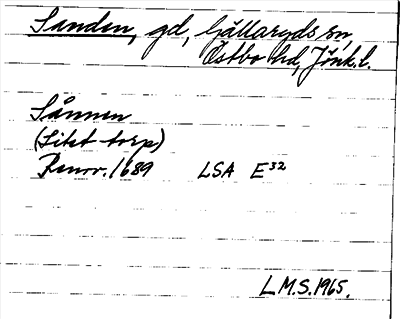 Sanden, gd, Gällaryds sn,
Östbo hd, Jönk. l.
Sånnen
(Litet torp)
Renov. 1689 LSA E32
L.M.S. 1965.